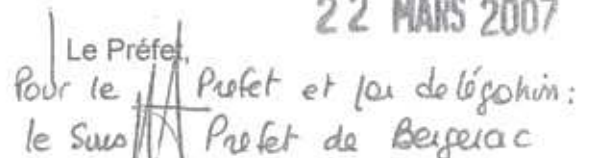 22 MARS 2007
Le Préfet,
Pour le Préfet et par délégation:
le Sous Préfet de Bergerac